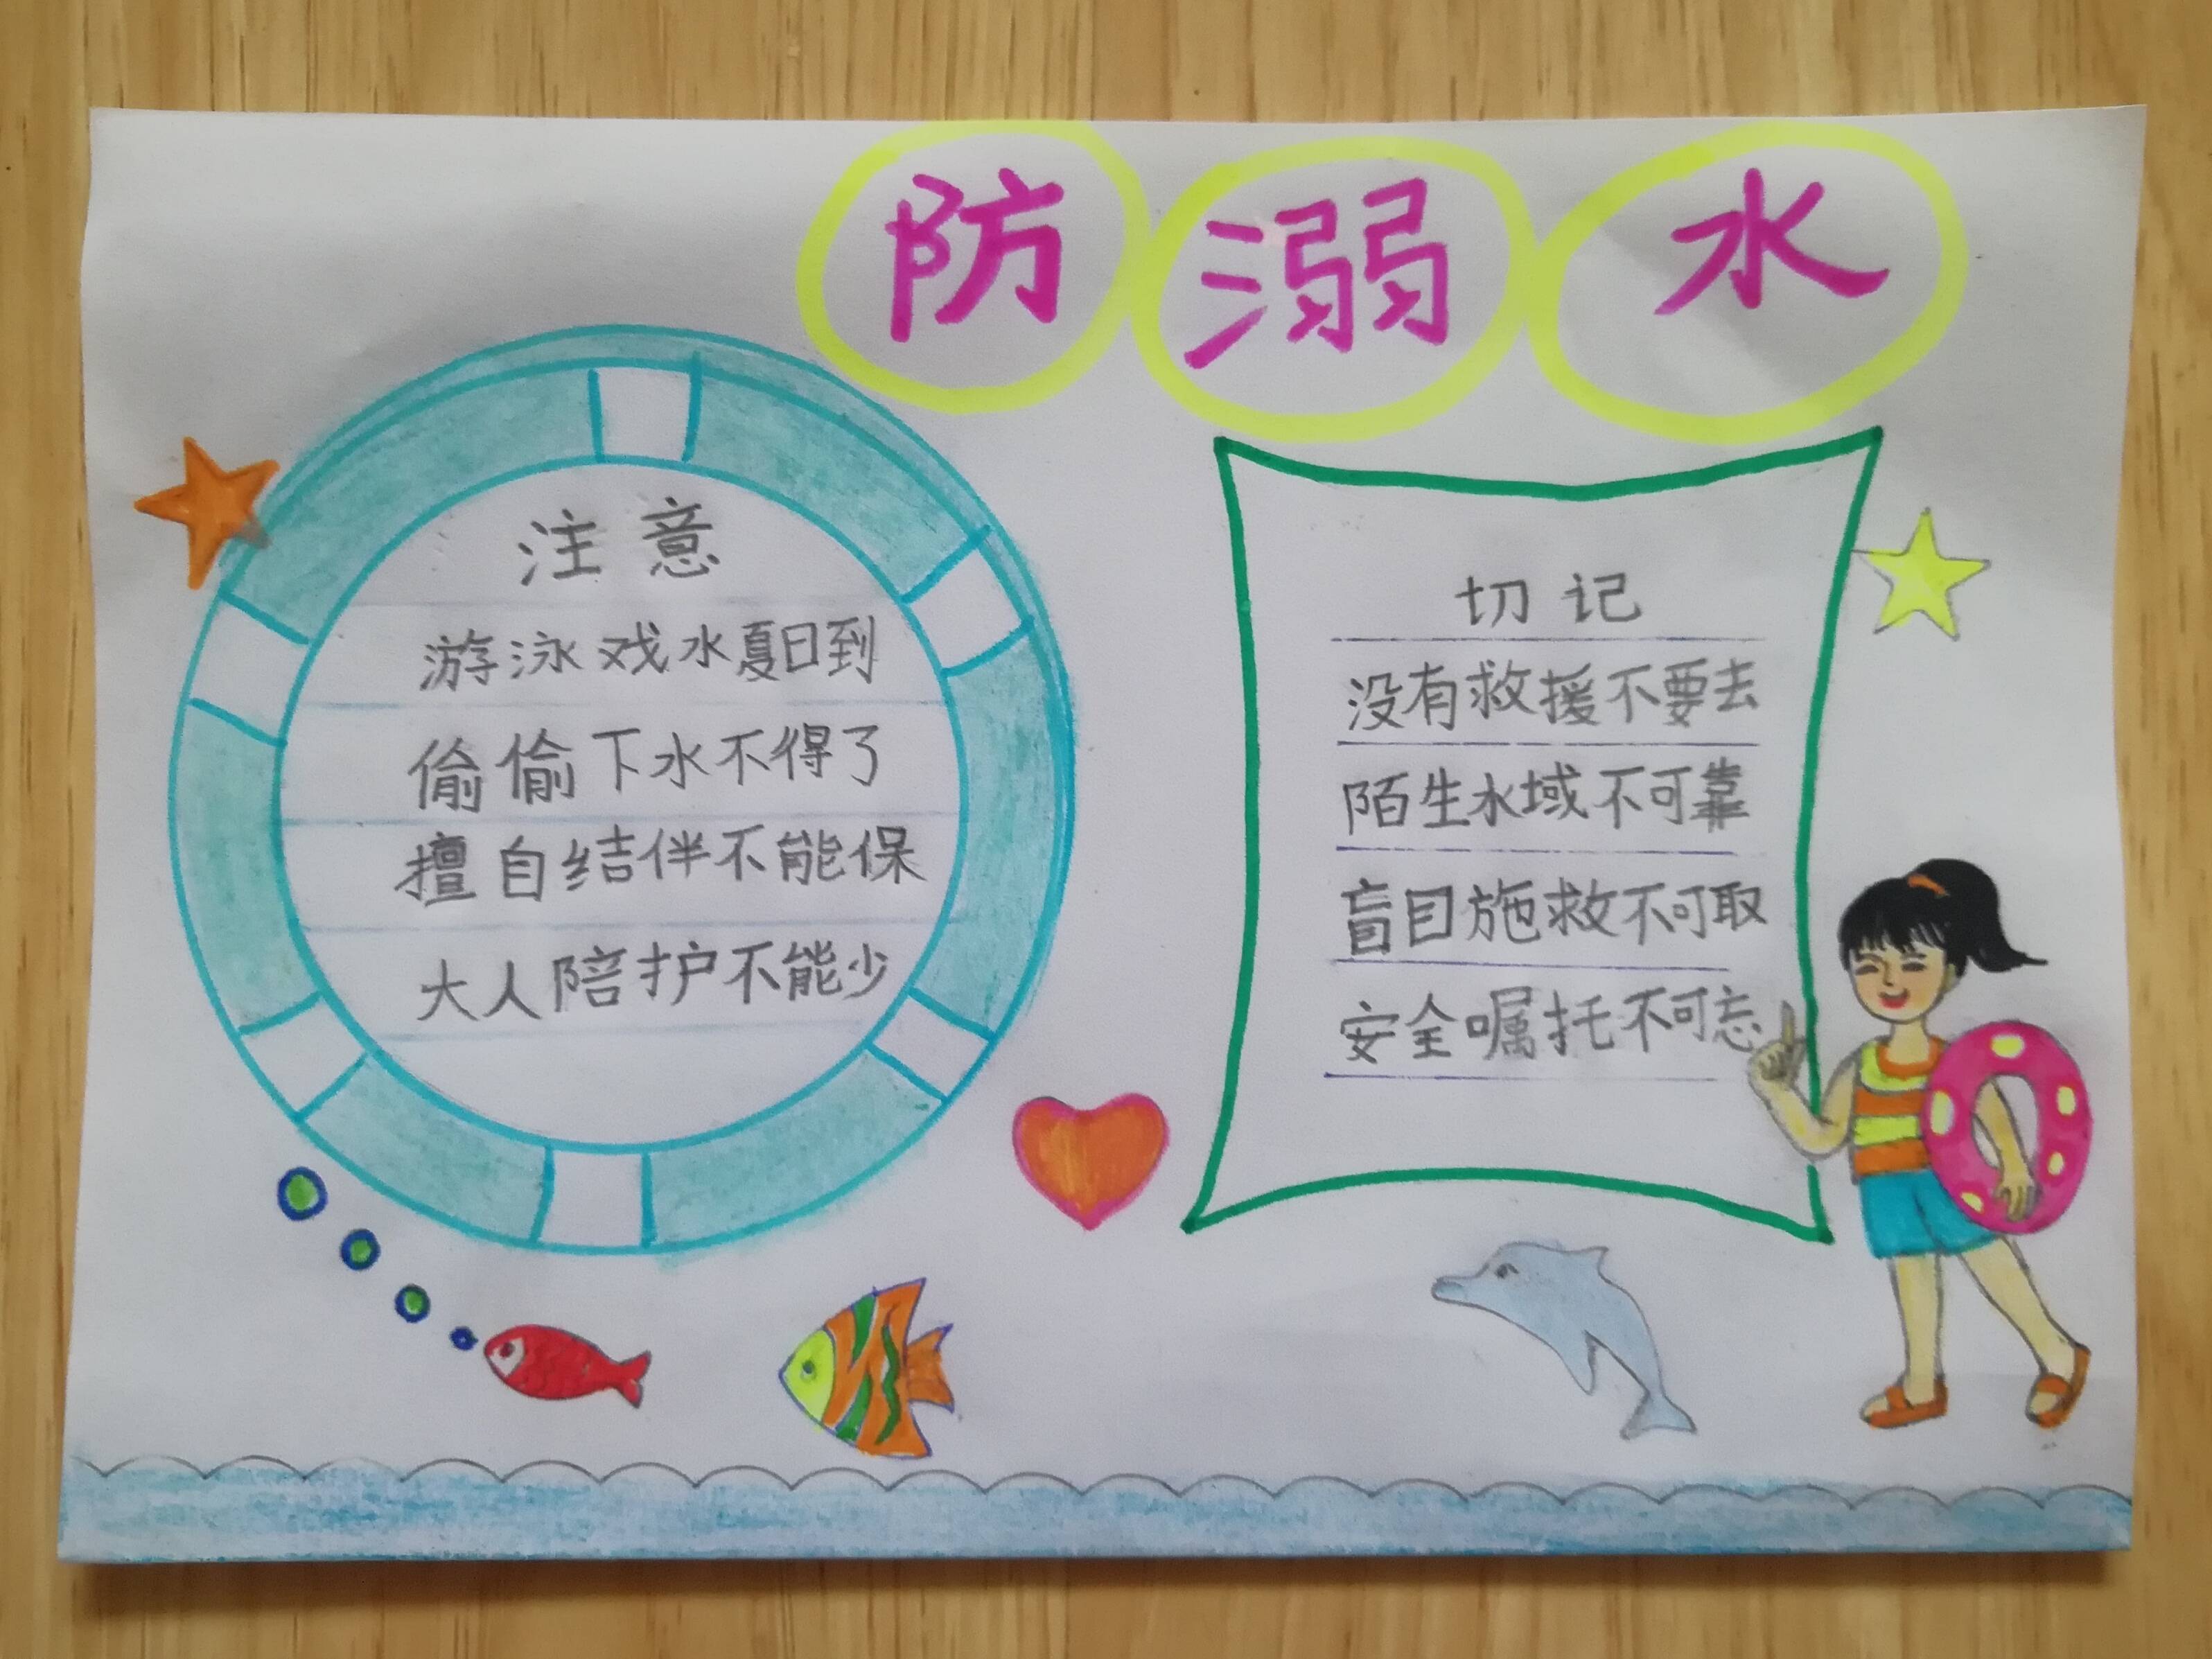 防溺水
注意
游泳戏水夏日到
偷偷下水不得了
擅自结伴不能保
大人陪护不能少
切记
没有救援不要去
陌生水域不可靠
盲目施救不可取
安全嘱托不可忘